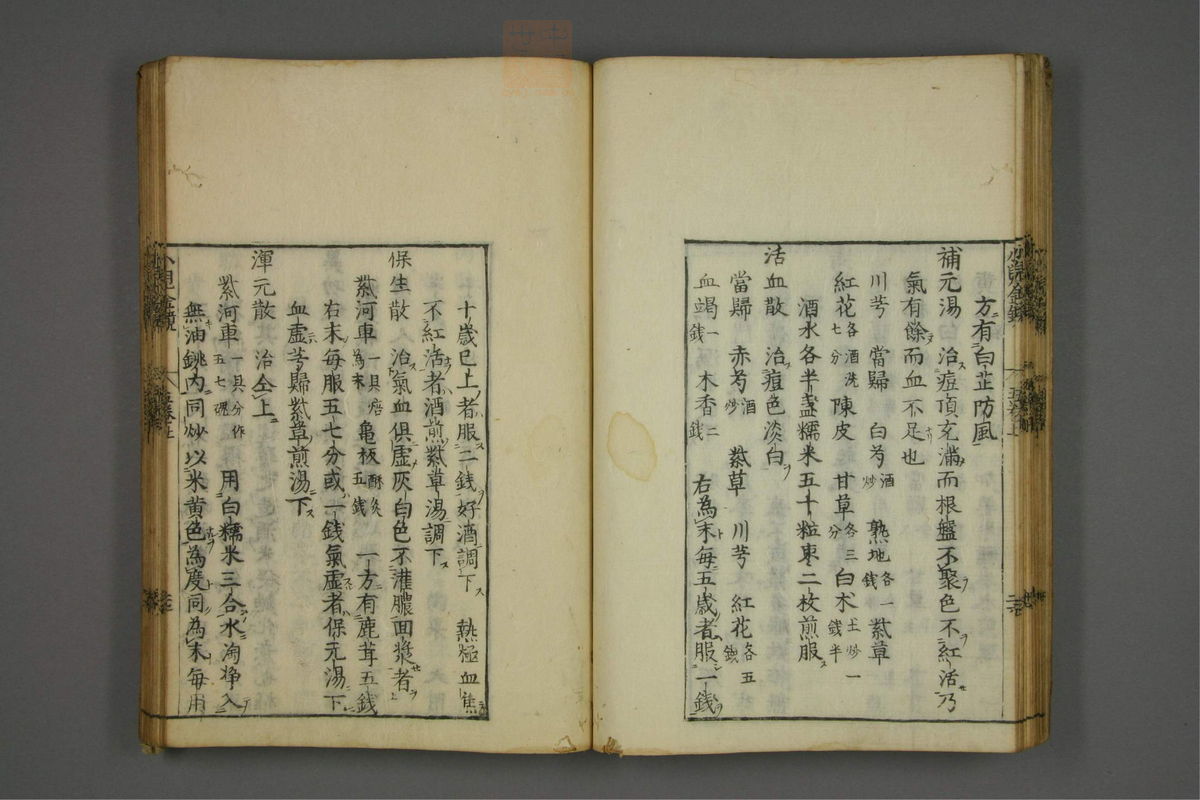 方有白芷防風
補元湯　治痘頂充滿而根盤不聚色不紅活乃
氣有餘而血不足也
川芎　當歸　白芍酒炒　熟地各一錢紫草
紅花各七分酒洗　陳皮　甘草各三分白术土炒一錢半
酒水各半盞糯米五十粒枣二枚煎服
活血散　治痘色淡白
當歸　赤芍酒炒　紫草　川芎　紅花各五錢
血竭一錢　木香二錢　右為末每五歲者服一錢
十歲已上者服二錢好酒調下　熱極血焦
不紅活者酒煎紫草湯調下
保生散　治氣血俱虛灰白色不灌膿面漿者
紫河車一具焙為末龜板酥炙五錢　一方有鹿茸五錢
右末每服五七分或一錢氣虛者保元湯下
血虛芎歸紫草煎湯下
渾元散　治仝上
紫河車一具分作五七塊　用白糯米三合水淘淨入
無油銚内同炒以米黄色為度同為末每用